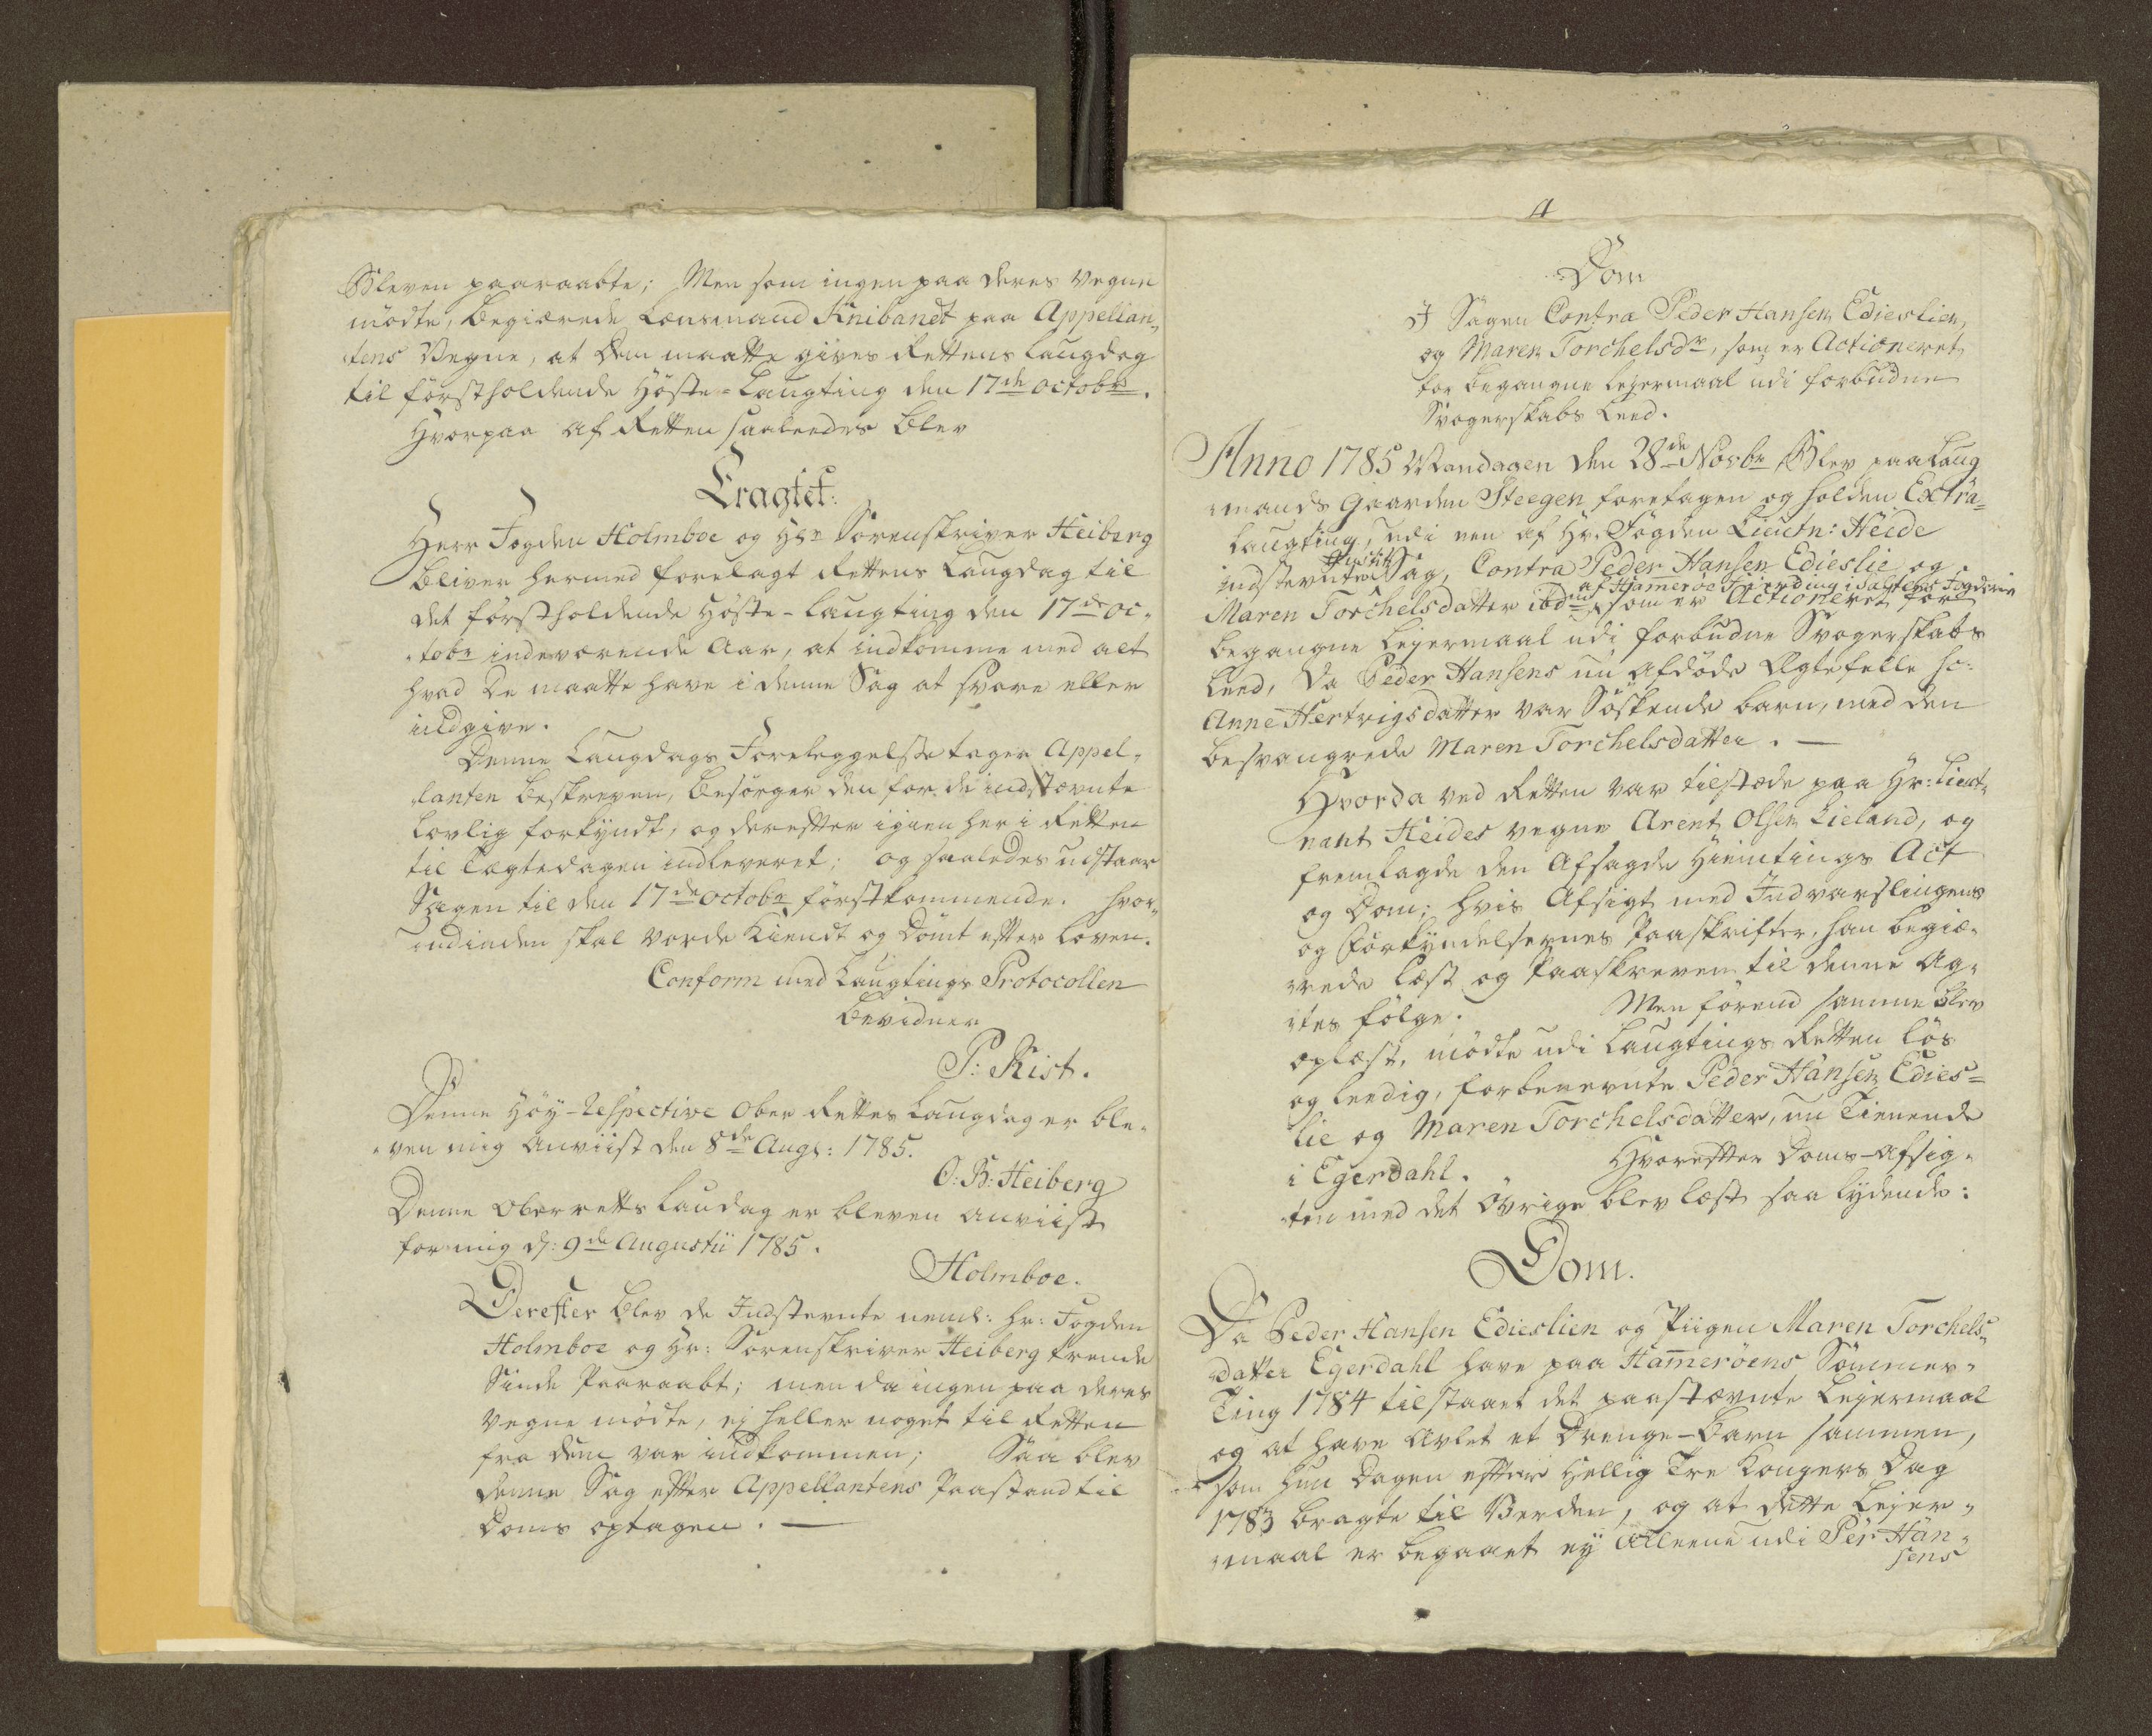 Bleven paaraabte; Men som ingen paa deres vegne
mödte, begiærede Lensmand Knibandt paa Appellan-
tens Vegne, at Dem maatte gives Rettens Laugdag
til förstholdende Höste-Laugting den 17de octobr.
Hvorpaa af Retten saaleedes blev
Eragtet:
Herr Fogden Holmboe og Hrr Sorenskriver Heiberg
bliver hermed forelagt Rettens Laugdag til
det förstholdende Höste-Laugting den 17de oc-
tobr indeværende Aar, at indkomme med alt
hvad De maatte have i denne Sag at svare eller
indgive.
Denne Laugdags Foreleggelse tager Appel-
lanten beskreven, besörger den for de indstevnte
lovlig forkyndt, og derefter igien her i Retten
til Tægtedagen indleveret; og saaledes udstaar
Sagen til den 17de octobr förstkommende. hvor-
indinden skal vorde Kiendt og Dömt efter Loven.
Conform med Laugtings Protocollen
bevidner
P: Rist.
Denne Höy-respective Ober Rettes Laugdag er ble-
ven mig anviist den 8de Augs: 1785.
O: B: Heiberg
Denne Oberretts Laudag er bleven anviist
for mig d: 9de Augustii 1785.
Holmboe.
Derefter blev de Indstevnte neml: Hr: Fogden
Holmboe og Hr: Sorenskriver Heiberg trende
Sinde Paaraabt; men da ingen paa deres
vegne mödte, ej heller noget til Retten
fra dem var indkommen; Saa blev
denne Sag efter Appellantens Paastand til
Doms optagen. —
4
Dom
I Sagen Contra Peder Hansen Edieslien,
og Maren Torchelsdr, som er Actioneret
for begangne Lejermaal udi forbudne
Svogerskabs Leed.
Anno 1785 Mandagen den 28de Novbr Blev paa Laug
mands Gaarden Steegen foretagen og holden Extra-
Laugting, udi een af Hr. Fogden Lieutn: Heide
indstevnten Justits Sag, Contra Peder Hansen Edieslie og
af Hammeröe Fierding i Saltens Fogderie
Maren Torchelsdatter ibdm som er Actioneret for
begangne Lejermaal udi forbudne Svogerskabs
Leed, Da Peder Hansens nu afdöde Egtefelle
Anne Hertvigsdatter var Söskende barn, med den
besvangrede Maren Torchelsdatter. —
Hvorda ved Retten var tilstæde paa Hr: Lieut-
nant Heides vegne Arent Olsen Lieland, og
fremlagde den Afsagde Hiemtings Act
og Dom; hvis Afsigt med Indvarslingens
og Forkyndelsernes Paaskrifter, han begiæ-
rede læst og Paaskreven til denne Ag-
tes fölge. Men förend samme blev
oplæst, mödte udi Laugtings Retten lös
og leedig, forbenevnte Peder Hansen Edies-
lie og Maren Torchelsdatter, nu Tienende
i Egerdahl. Hvorefter Doms-Afsig-
ten med det Övrige blev læst saa lydende:
Dom.
Da Peder Hansen Edieslien og Piigen Maren Torchels-
datter Egerdahl have paa Hammeröens Sommer-
Ting 1784 tilstaaet det paastævnte Lejermaal
og at have avlet et Drenge-Barn sammen,
som hun Dagen efter Hellig Tre Kongers Dag
1783 bragte til Verden, og at dette Lejer-
maal er begaaet ey Alleene udi Per Han-
sens